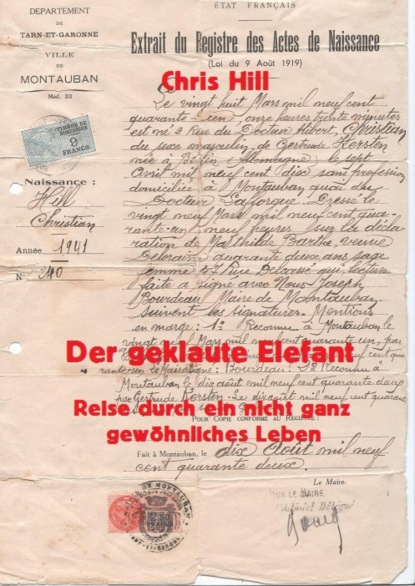 DÉPARTEMENT
DE
TARN-ET-GARONNE
VILLE
DE
MONTAUBAN
Mod. 32
TIMBRE DE
DIMENSION
9
FRANCS
Naissance :
Hill
Christian
Année 1941
N° 240
ÉTAT FRANÇAIS
Extrait du Registre des Actes de Naissance
(Loi du 9 Août 1919)
Chris Hill
Le vingt huit Mars mil neuf cent
quarante un, onze heures trente minutes
est né 2 Rue du Docteur Albert, Christian
du sexe masculin, de Gertrude Kersten
née à Berlin (Allemagne) le sept
Avril mil neuf cent dix sans profession
domiciliée à Montauban quai du
Docteur Lafforgue. Dressé le
vingt neuf Mars mil neuf cent qua-
rante un neuf heures, sur la décla-
ration de Mathilde Barthe, veuve
quarante deux ans sage
femme 47 Rue qui, lecture
faite a signé avec Nous Joseph
Bourdeau Maire de Montauban
Suivent les signatures. Mentions
en marge : 1° Reconnu à Montauban le
vingt Mars mil neuf cent quarante un, par
Der geklaute Elefant
Bourdeau. 2° Reconnu à
Montauban le dix août mil neuf cent quarante deux
par Gertrude Kersten. Le dix août mil neuf cent quarante
Reise durch ein nicht ganz
POUR COPIE CONFORME AU REGISTRE :
gewöhnliches Leben
Fait à Montauban, le dix Août mil neuf
cent quarante deux.
Le Maire,
POUR LE MAIRE
L'Adjoint Délégué
DE MONTAUBAN
FRANCS